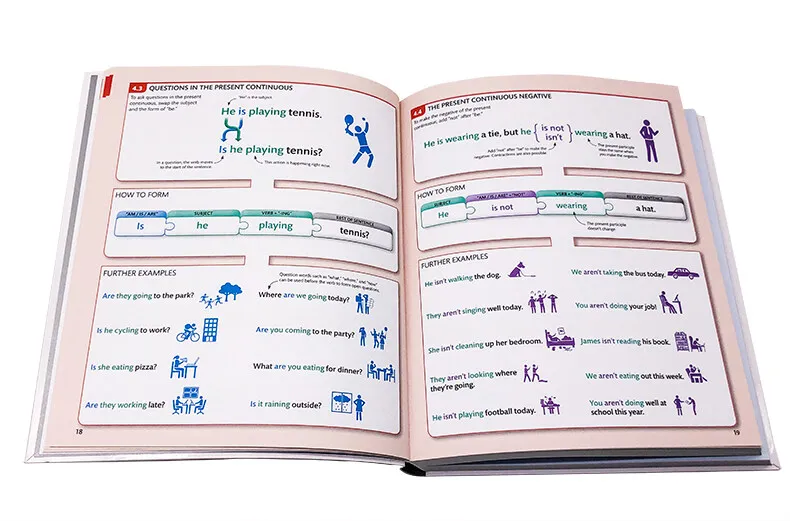 4.3 QUESTIONS IN THE PRESENT CONTINUOUS
To ask questions in the present
continuous, swap the subject
and the form of "be."
"He" is the subject.
He is playing tennis.
Is he playing tennis?
In a question, the verb moves
to the start of the sentence.
This action is happening right now.
HOW TO FORM
"AM / IS / ARE"
SUBJECT
VERB + "-ING"
REST OF SENTENCE
Is
he
playing
tennis?
FURTHER EXAMPLES
Question words such as "what," "where," and "how"
can be used before the verb to form open questions.
Are they going to the park?
Where are we going today?
Is he cycling to work?
Are you coming to the party?
Is she eating pizza?
What are you eating for dinner?
Are they working late?
Is it raining outside?
18
4.4 THE PRESENT CONTINUOUS NEGATIVE
To make the negative of the present
continuous, add "not" after "be."
He is wearing a tie, but he { is not / isn't } wearing a hat.
Add "not" after "be" to make the
negative. Contractions are also possible.
The present participle
stays the same when
you make the negative.
HOW TO FORM
SUBJECT
"AM / IS / ARE" + "NOT"
VERB + "-ING"
REST OF SENTENCE
He
is not
wearing
a hat.
The present participle
doesn't change.
FURTHER EXAMPLES
He isn't walking the dog.
We aren't taking the bus today.
They aren't singing well today.
You aren't doing your job!
She isn't cleaning up her bedroom.
James isn't reading his book.
They aren't looking where
they're going.
We aren't eating out this week.
He isn't playing football today.
You aren't doing well at
school this year.
19